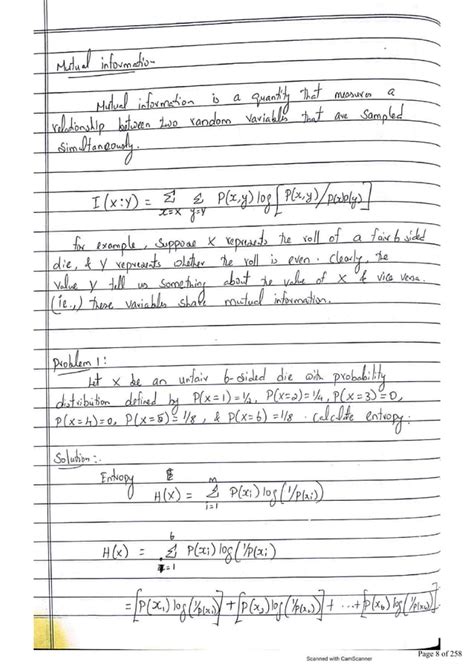 Mutual information
Mutual information is a quantity that measures a
relationship between two random variables that are sampled
simultaneously.
I(x:y) = Σ Σ P(x,y) log [P(x,y)/P(x)P(y)]
x=X y=Y
for example, suppose X represents the roll of a fair 6 sided
die, & Y represents whether the roll is even. Clearly, the
value Y tell us something about the value of X & vice versa.
(ie.,) these variables share mutual information.
Problem 1:
Let X be an unfair 6-sided die with probability
distribution defined by P(X=1)=1/2, P(X=2)=1/4, P(X=3)=0,
P(X=4)=0, P(X=5)=1/8, & P(X=6)=1/8. Calculate entropy.
Solution:-
Entropy
m
H(X) = Σ P(xi) log(1/P(xi))
i=1
6
H(X) = Σ P(xi) log(1/P(xi)
i=1
= [P(x1) log(1/P(x1))] + [P(x2) log(1/P(x2))] + ... + [P(x6) log(1/P(x6))]
Page 8 of 258
Scanned with CamScanner